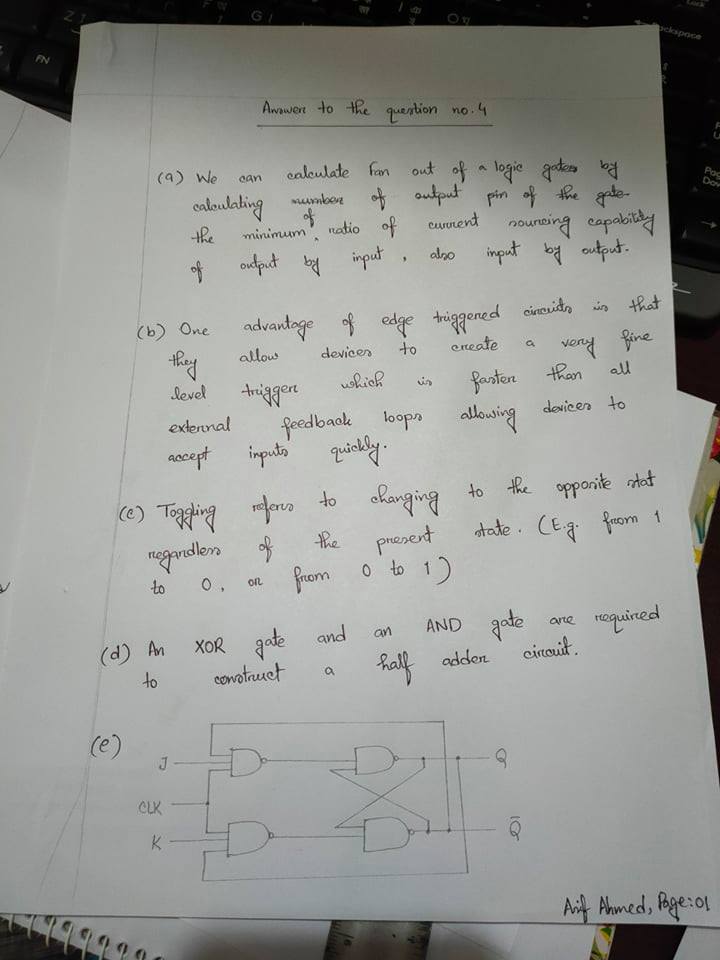 Answer to the question no. 4
(a) We can calculate Fan out of a logic gates by
calculating number of output pin of the gate.
the minimum of ratio of current sourcing capability
of output by input, also input by output.
(b) One advantage of edge triggered circuits is that
they allow devices to create a very fine
level trigger which is faster than all
external feedback loops allowing devices to
accept inputs quickly.
(c) Toggling refers to changing to the opposite stat
regardless of the present state. (E.g. from 1
to 0, or from 0 to 1)
(d) An XOR gate and an AND gate are required
to construct a half adder circuit.
(e)
J
Q
CLK
K
Q̅
Arif Ahmed, Page:01
FN
Backspace